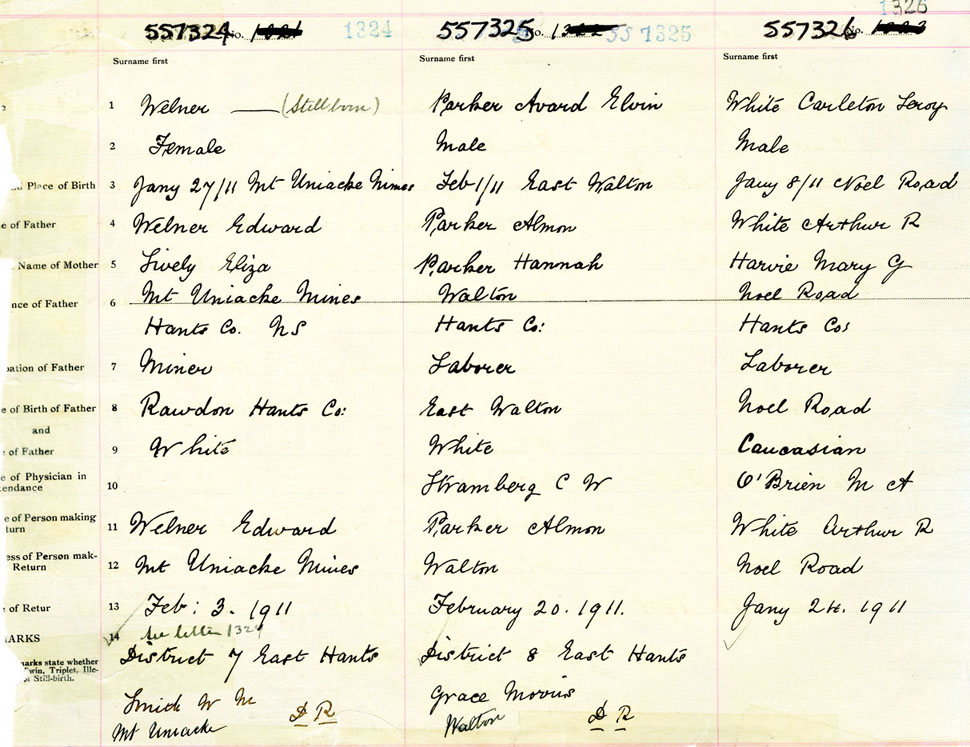 1326
557324 No. 1324
557325 No. 55 1325
557326 No.
Surname first Surname first Surname first
1 Welner —— (Stillborn) Parker Avard Elvin White Carleton Leroy
2 Female Male Male
Place of Birth 3 Jany 27/11 Mt Uniacke Mines Feb 1/11 East Walton Jany 8/11 Noel Road
e of Father 4 Welner Edward Parker Almon White Arthur R
Name of Mother 5 Lively Eliza Parker Hannah Harvie Mary G
nce of Father 6 Mt Uniacke Mines Walton Noel Road
Hants Co. NS Hants Co: Hants Co:
pation of Father 7 Miner Laborer Laborer
e of Birth of Father 8 Rawdon Hants Co: East Walton Noel Road
and
of Father 9 White White Caucasian
e of Physician in
tendance 10 Stramberg C W O'Brien M A
e of Person making
turn 11 Welner Edward Parker Almon White Arthur R
ess of Person mak-
Return 12 Mt Uniacke Mines Walton Noel Road
of Retur 13 Feb: 3. 1911 February 20. 1911. Jany 24. 1911
ARKS 14 See letter 1324
District 7 East Hants District 8 East Hants
marks state whether
Twin, Triplet, Ille-
Still-birth.
W M Grace Morris
Mt Uniacke D R Walton D R